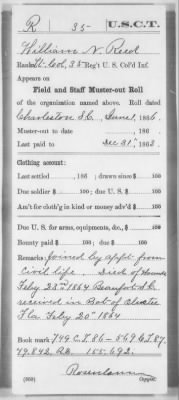 R 35 U.S.C.T.
William N. Reed
Rank Lt. Col, 35 Reg't U. S. Col'd Inf.
Appears on
Field and Staff Muster-out Roll
of the organization named above. Roll dated
Charleston S.C., June 1, 1866.
Muster-out to date , 186 .
Last paid to Dec 31, 1863.
Clothing account:
Last settled , 186 ; drawn since $ 100
Due soldier $ 100; due U. S. $ 100
Am't for cloth'g in kind or money adv'd $ 100
Due U. S. for arms, equipments, &c., $ 100
Bounty paid $ 100; due $ 100
Remarks: Joined by appt. from
Civil life. Died of Wounds
Feby 28th 1864 Beaufort S.C.
received in Bat of Olustee
Fla Feby 20th 1864
Book mark: 749 C.T. 86 - 569 C.T. 87.
(360) Copyist.